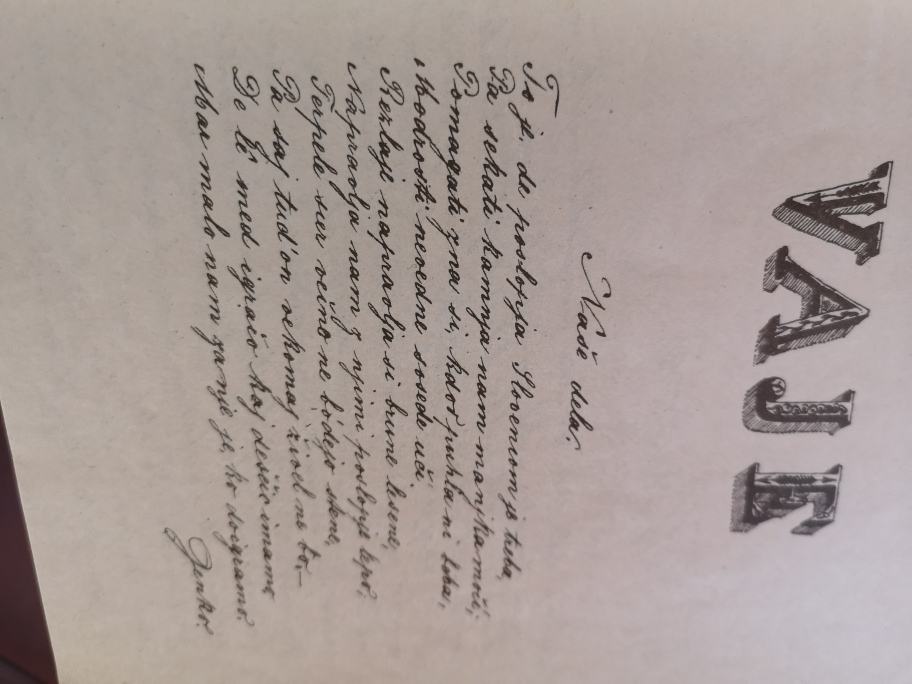 VAJE
Naše dela.
To je, de poslopja Slovencam je treba,
Pa sekati kamnja nam manjka moči;
Pomagati zna si, kdor puhla ni boba,
Modrosti nevedne sosede uči.
Rezlaje napravlja si hune lesene,
Napravlja nam z njimi poslopje lepo;
Terpele sicer večno ne bodejo stene,
Pa saj tud' on vekomaj živel ne bo. —
De le med igračo kaj deščic imamo,
Mar malo nam zanje je, ko doigramo.
Jenko.